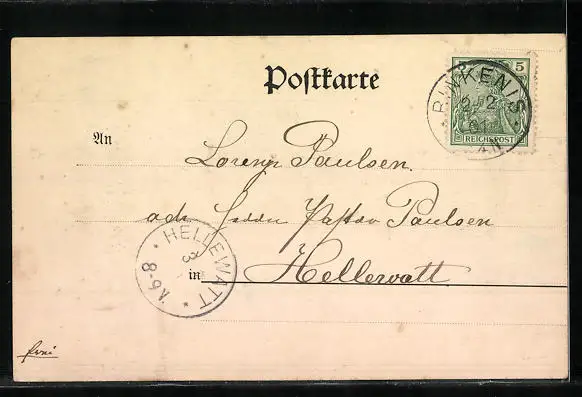 Postkarte
5 5
REICHSPOST
RINKENIS
2 2
01
An
Lorenz Paulsen.
adr. Herrn Pastor Paulsen
in Hellewatt.
HELLEWATT
3
6-8